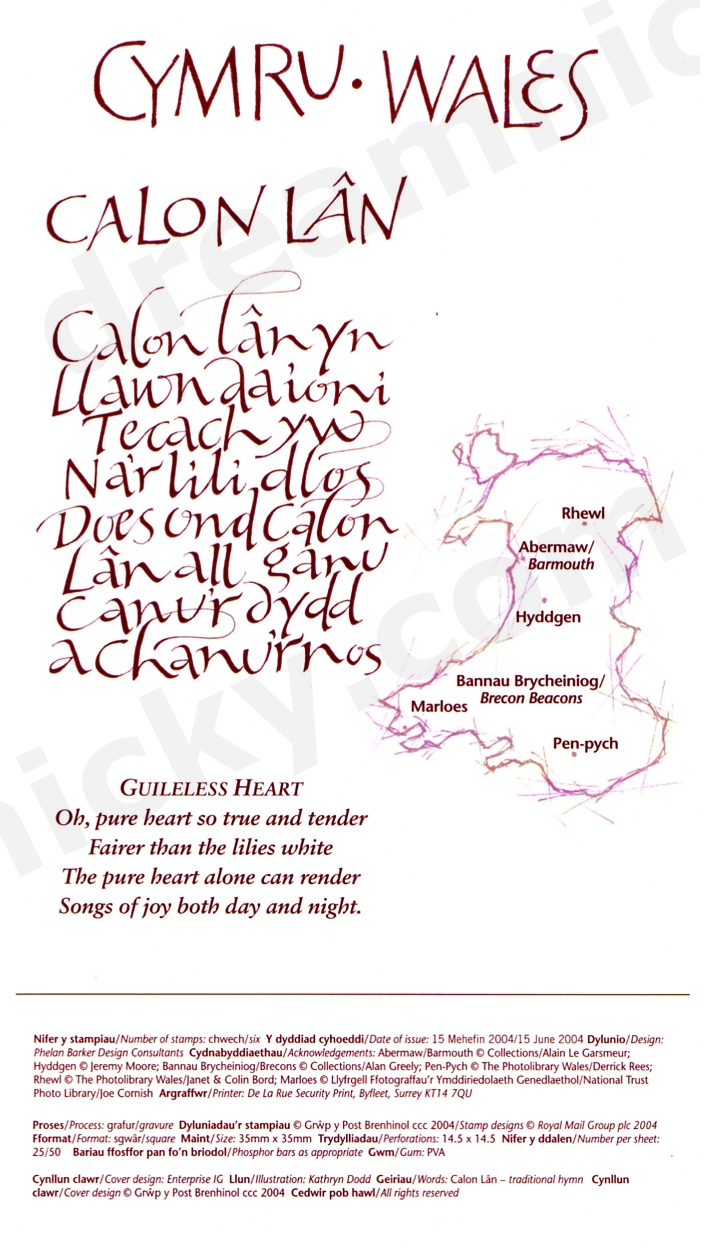 CYMRU · WALES
CALON LÂN
Calon lân yn
Llawn daioni
Tecach yw
Na'r lili dlos
Does ond calon
Lân all ganu
Canu'r dydd
a chanu'r nos
Rhewl
Abermaw/
Barmouth
Hyddgen
Bannau Brycheiniog/
Brecon Beacons
Marloes
Pen-pych
GUILELESS HEART
Oh, pure heart so true and tender
Fairer than the lilies white
The pure heart alone can render
Songs of joy both day and night.
Nifer y stampiau/Number of stamps: chwech/six Y dyddiad cyhoeddi/Date of issue: 15 Mehefin 2004/15 June 2004 Dylunio/Design:
Phelan Barker Design Consultants Cydnabyddiaethau/Acknowledgements: Abermaw/Barmouth © Collections/Alain Le Garsmeur;
Hyddgen © Jeremy Moore; Bannau Brycheiniog/Brecons © Collections/Alan Greely; Pen-Pych © The Photolibrary Wales/Derrick Rees;
Rhewl © The Photolibrary Wales/Janet & Colin Bord; Marloes © Llyfrgell Ffotograffau'r Ymddiriedolaeth Genedlaethol/National Trust
Photo Library/Joe Cornish Argraffwr/Printer: De La Rue Security Print, Byfleet, Surrey KT14 7QU
Proses/Process: grafur/gravure Dyluniadau'r stampiau © Grŵp y Post Brenhinol ccc 2004/Stamp designs © Royal Mail Group plc 2004
Fformat/Format: sgwâr/square Maint/Size: 35mm x 35mm Trydylliadau/Perforations: 14.5 x 14.5 Nifer y ddalen/Number per sheet:
25/50 Bariau ffosffor pan fo'n briodol/Phosphor bars as appropriate Gwm/Gum: PVA
Cynllun clawr/Cover design: Enterprise IG Llun/Illustration: Kathryn Dodd Geiriau/Words: Calon Lân – traditional hymn Cynllun
clawr/Cover design © Grŵp y Post Brenhinol ccc 2004 Cedwir pob hawl/All rights reserved
dreamnic
nicky.com